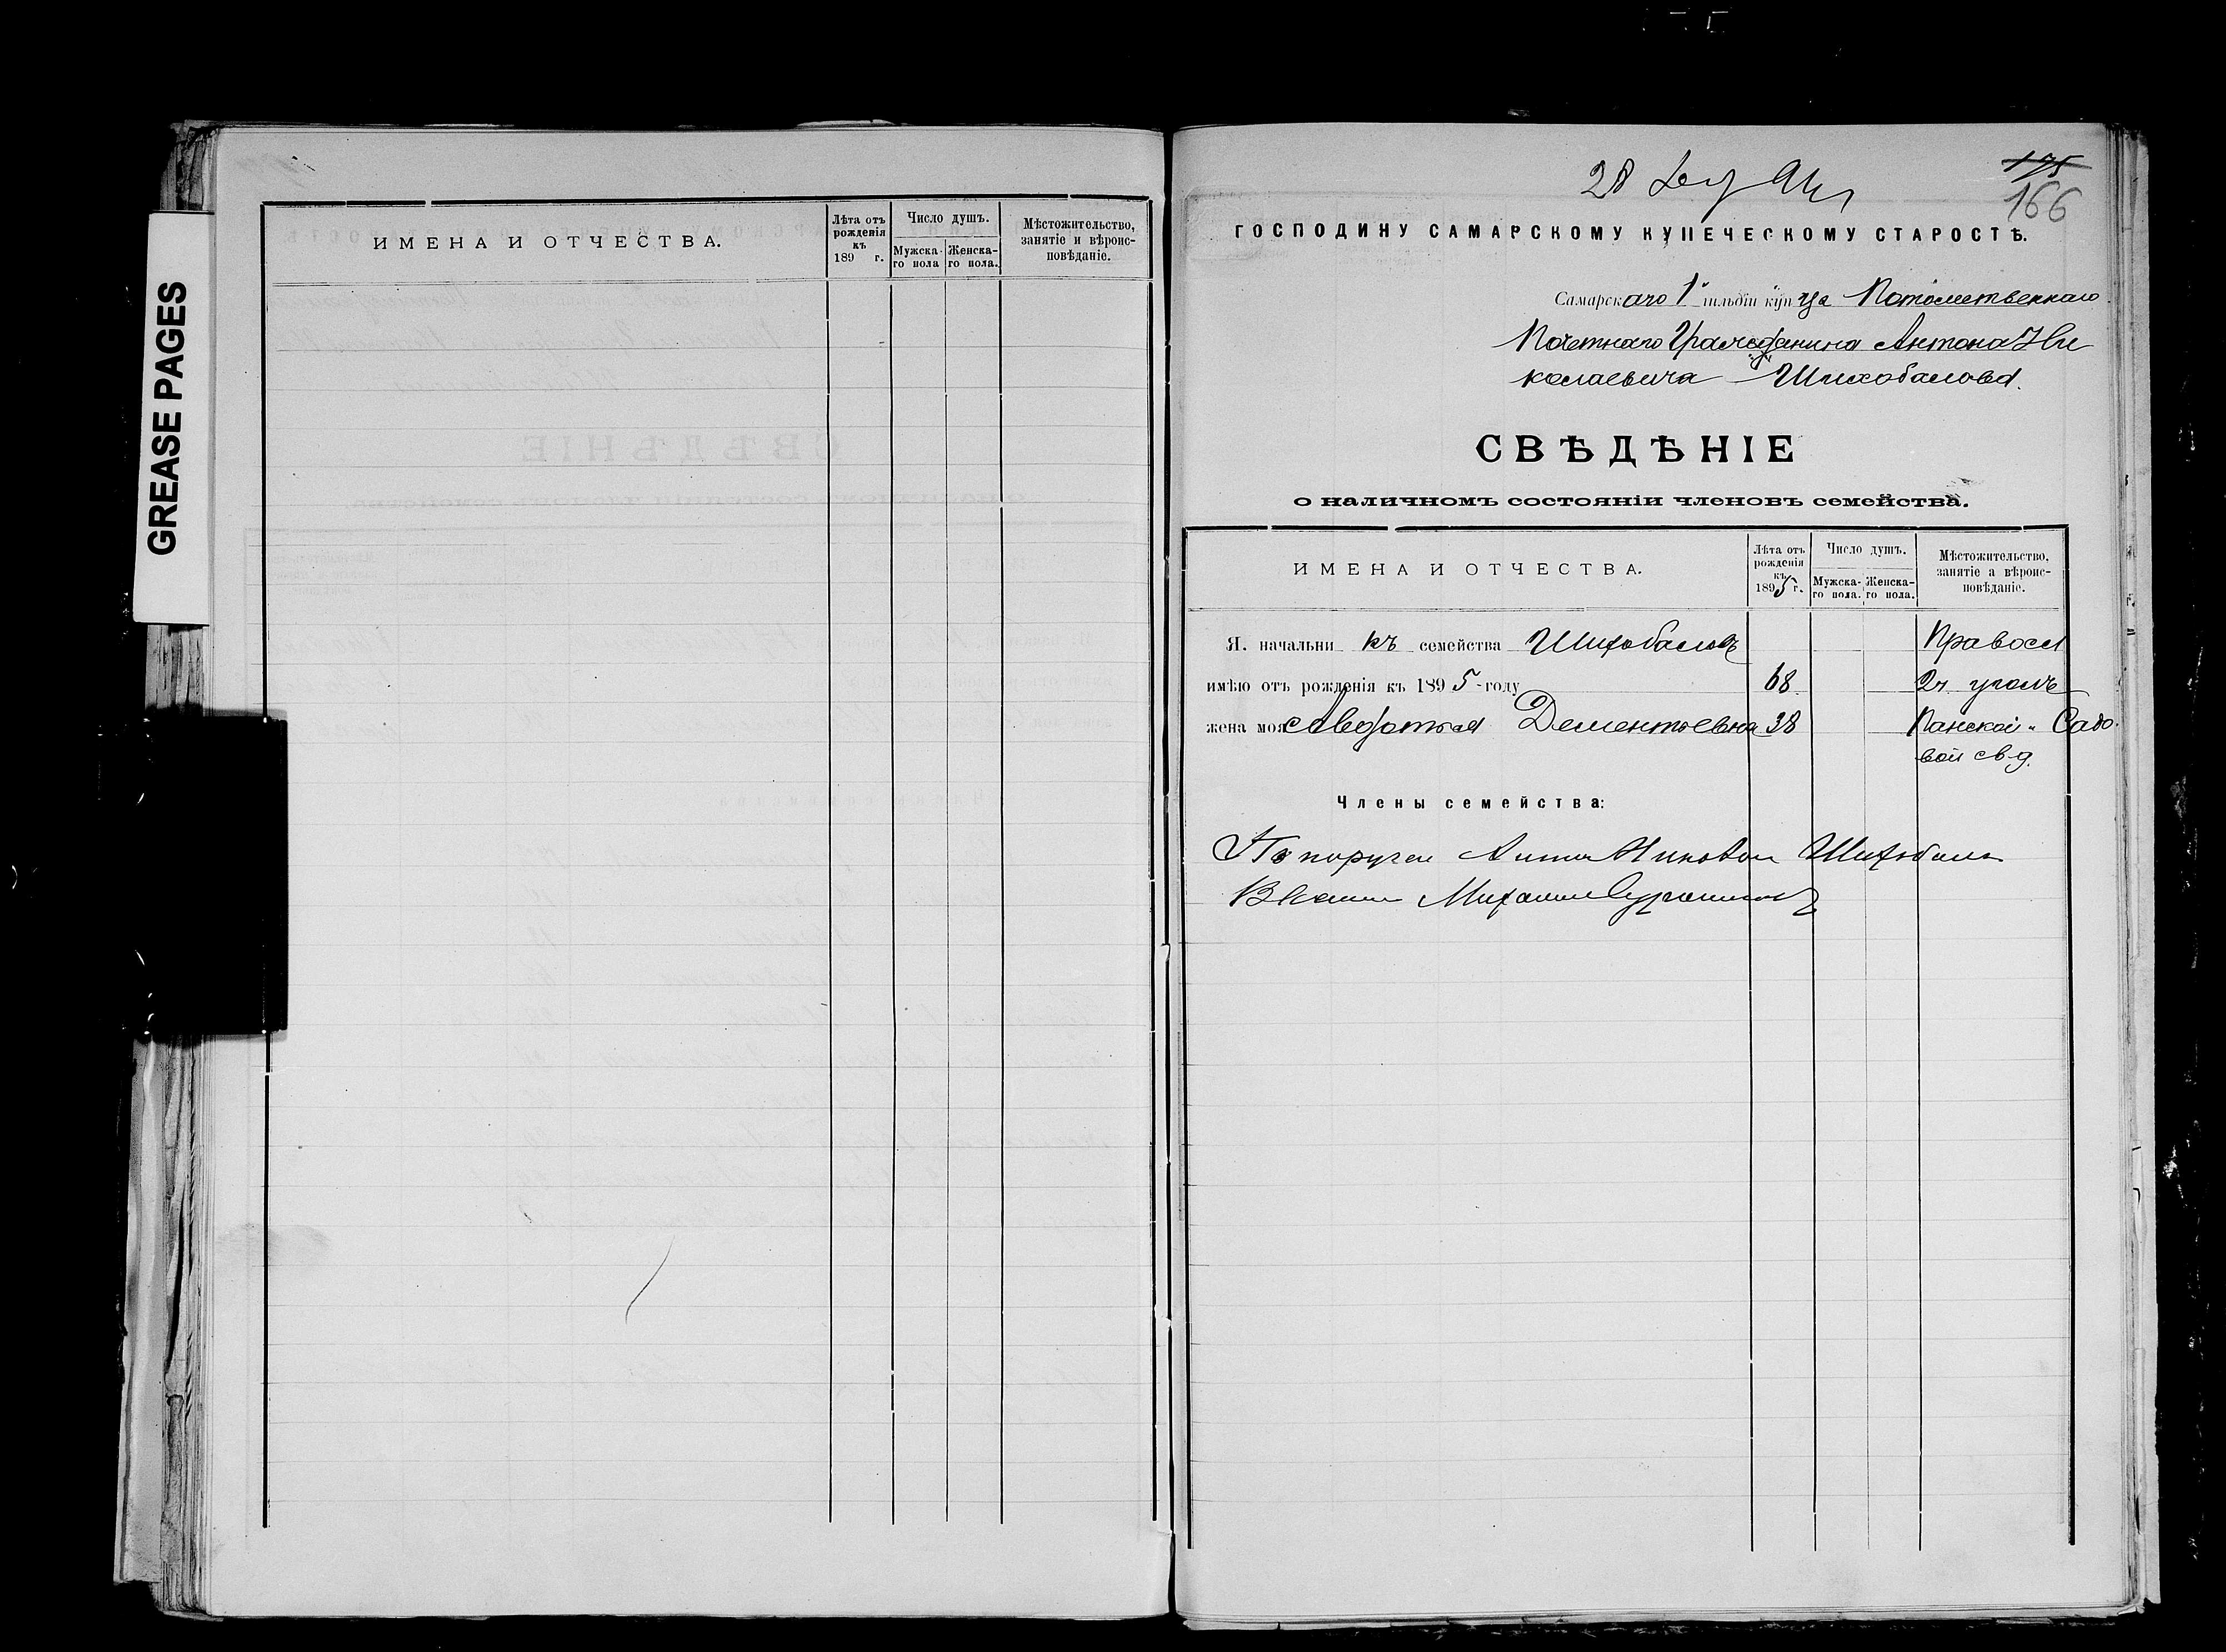 GREASE PAGES
ИМЕНА И ОТЧЕСТВА.
Лѣта отъ рожденія къ 189 г.
Число душъ.
Мужска-го пола
Женска-го пола.
Мѣстожительство, занятіе и вѣроис-повѣданіе.
28
175
166
ГОСПОДИНУ САМАРСКОМУ КУПЕЧЕСКОМУ СТАРОСТѢ.
Самарскаго 1й гильдіи купца Потомственнаго
Почетнаго Гражданина Антона Ни
колаевича Шихобалова.
СВѢДѢНІЕ
о наличномъ состояніи членовъ семейства.
ИМЕНА И ОТЧЕСТВА.
Лѣта отъ рожденія къ 1895 г.
Число душъ.
Мужска-го пола.
Женска-го пола.
Мѣстожительство, занятіе а вѣроис-повѣданіе.
Я. начальникъ семейства Шихобаловъ Правосл
имѣю отъ рожденія къ 1895-году 68. 2ч. уголъ
жена моя Авдотья Дементьевна 38 Панской и Садо
вой св д.
Члены семейства:
По поруче Антон Шихобал
Михаил